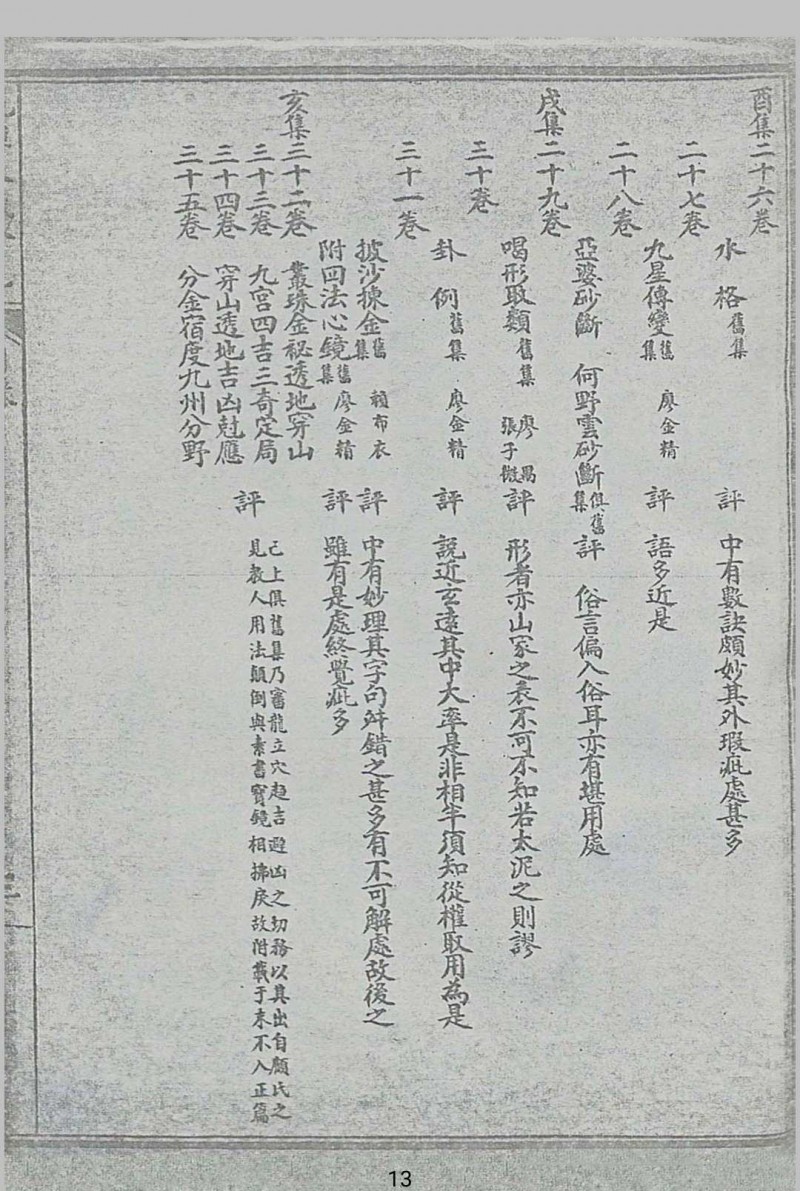 酉集二十六卷
水格 舊集 評 中有數訣頗妙其外瑕疵處甚多
二十七卷
九星傳變 舊集 廖金精 評 語多近是
二十八卷
亞婆砂斷 何野雲砂斷 俱舊集 評 俗言偏入俗耳亦有堪用處
戌集二十九卷
喝形取類 舊集 廖禹 張子微 評 形者亦山家之表不可不知若太泥之則謬
三十卷
卦例 舊集 廖金精 評 説近玄遠其中大率是非相半須知從權取用為是
三十一卷
披沙揀金 舊集 賴布衣 評 中有妙理其字句舛錯之甚多有不可解處故後之
附回法心鏡 舊集 廖金精 評 雖有是處終覺疵多
亥集三十二卷 叢珠金祕透地穿山
三十三卷 九宮四吉三奇定局
三十四卷 穿山透地吉凶尅應
三十五卷 分金宿度九州分野
評 已上俱舊集乃審龍立穴趨吉避凶之切務以其出自顧氏之
見教人用法顛倒與素書寶鏡相拂戾故附載于末不入正篇
13